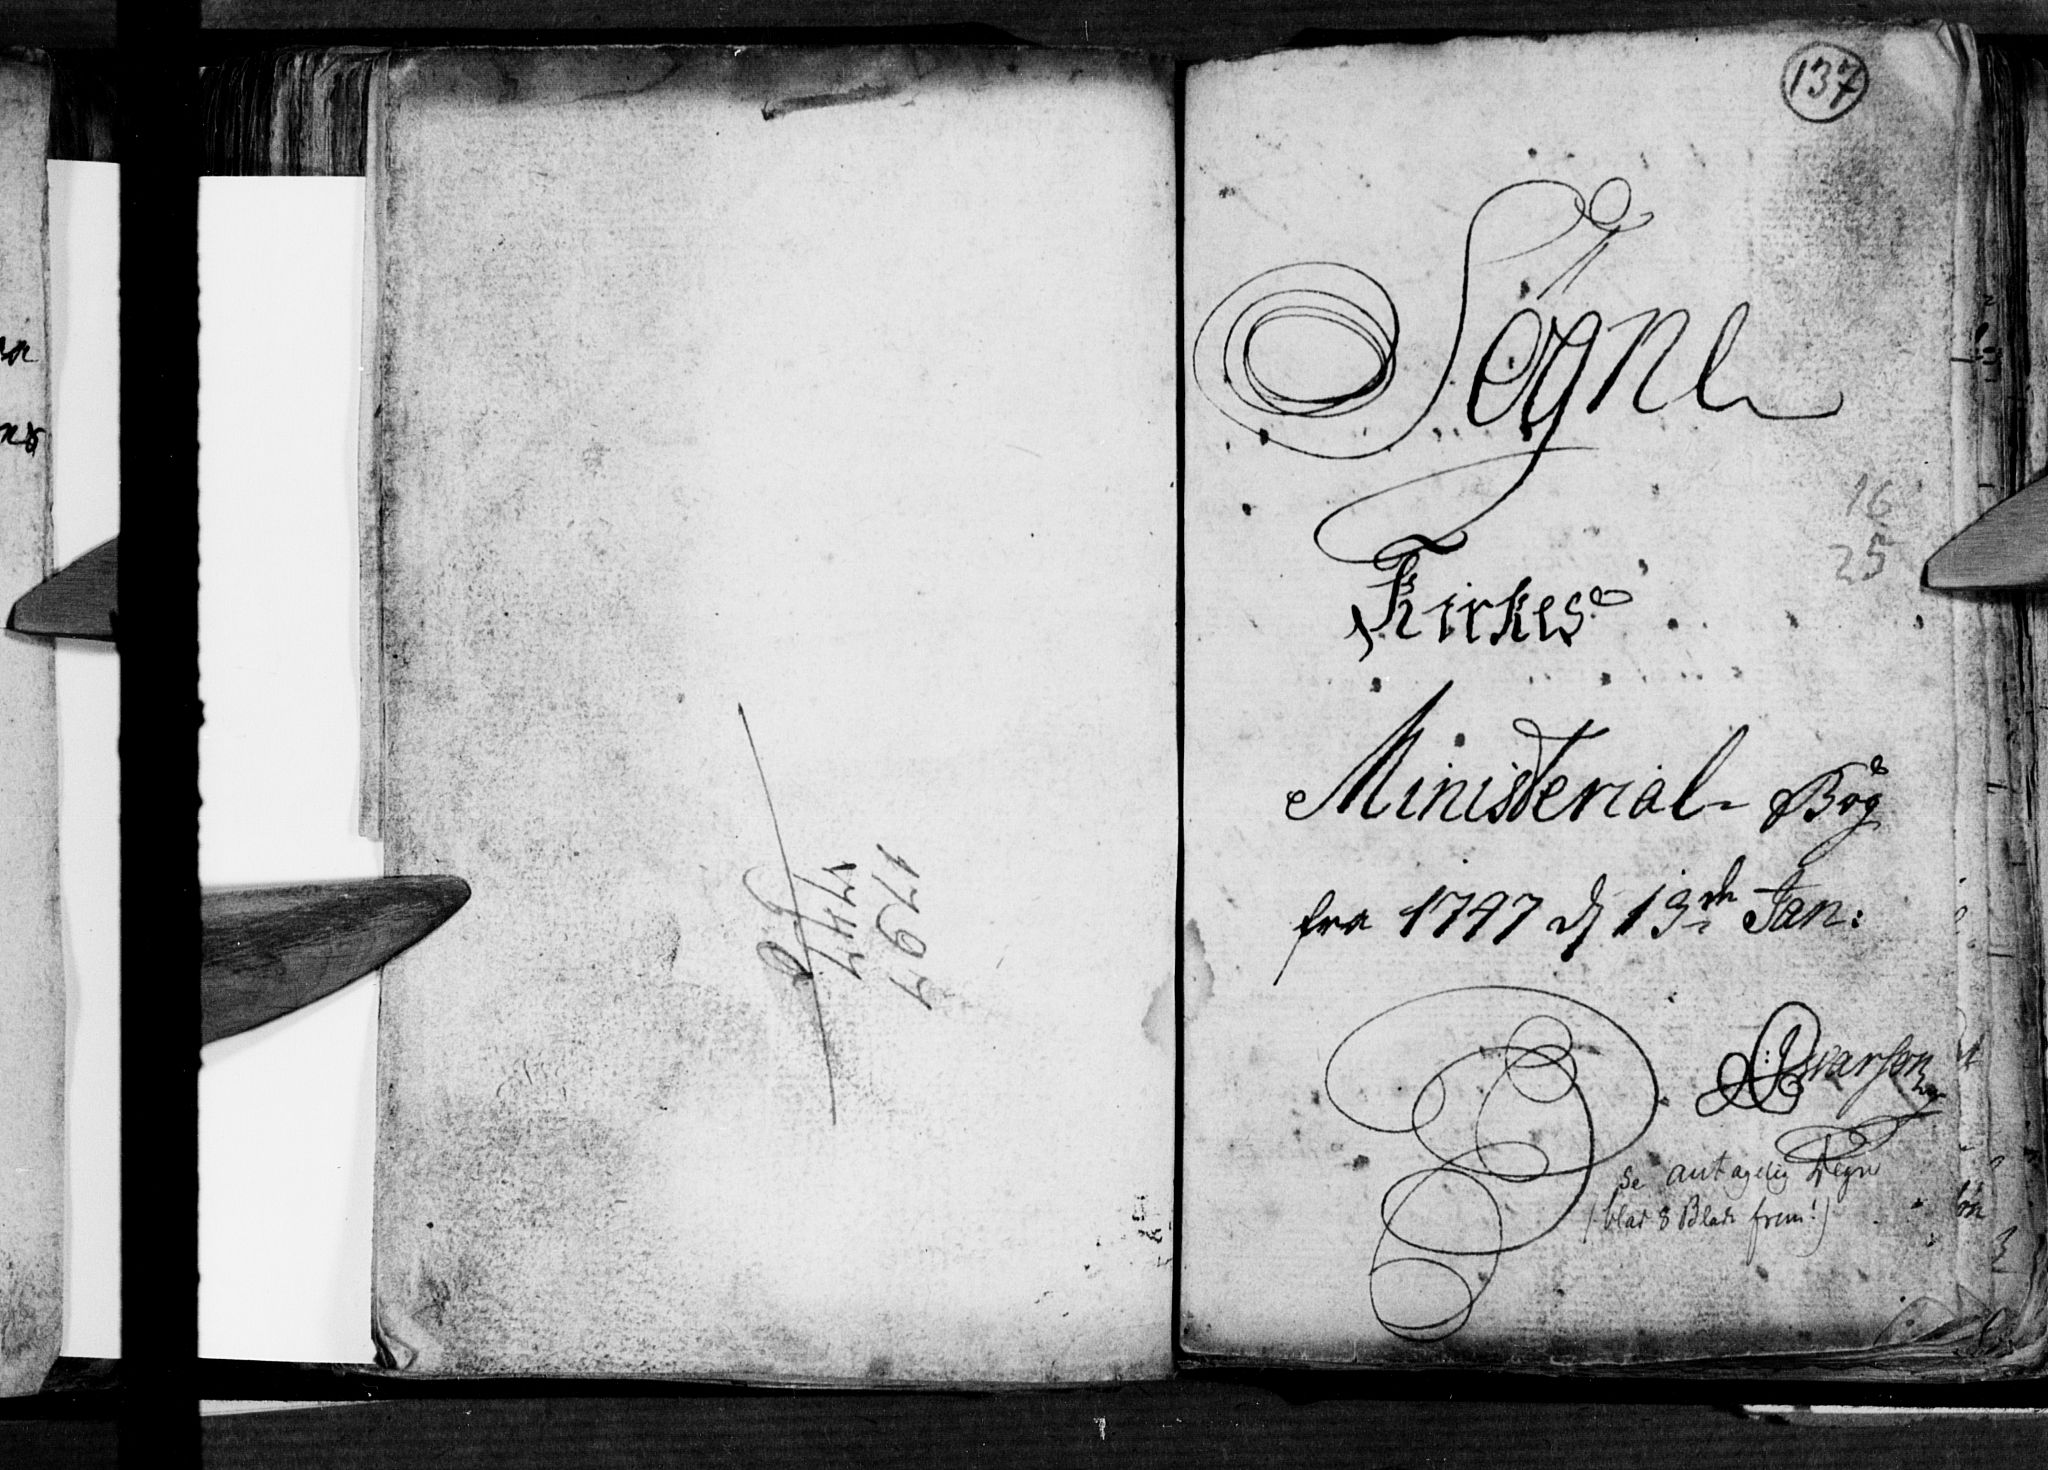 1747
1797
137
Søgne
16
25
Kirkes
Ministerial- Bog
fra 1747 d 13de Jan:
Iwarsen
se antagelig Degn
(blad 8 Blade frem!)